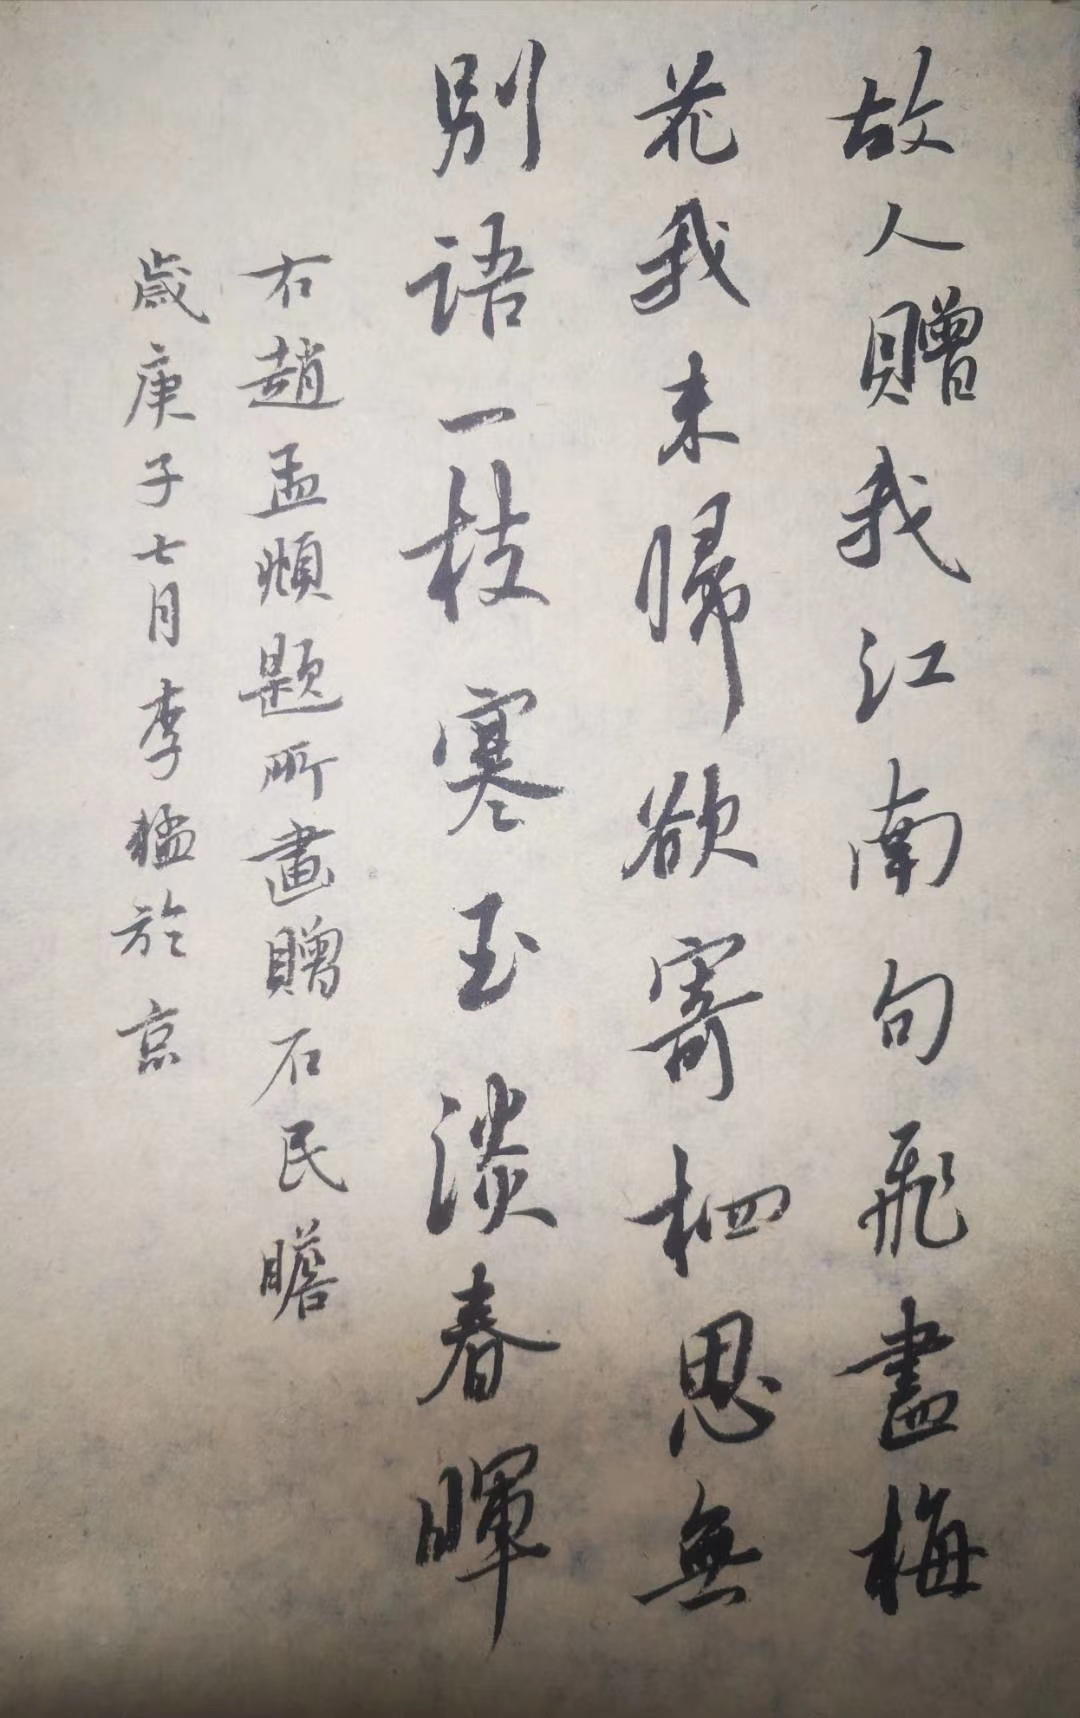 故人贈我江南句飛盡梅
花我未歸欲寄相思無
別語一枝寒玉淡春暉
右趙孟頫題所畫贈石民瞻
歲庚子七月李猛於京